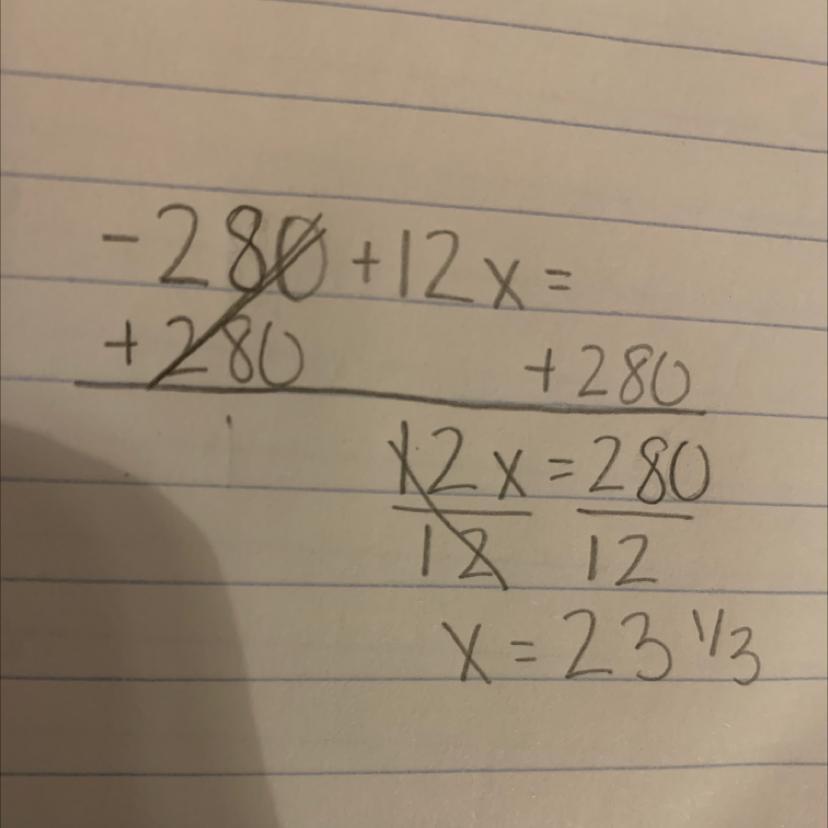 -280 +12x =
+280 +280
12x = 280
12 12
x = 23 1/3